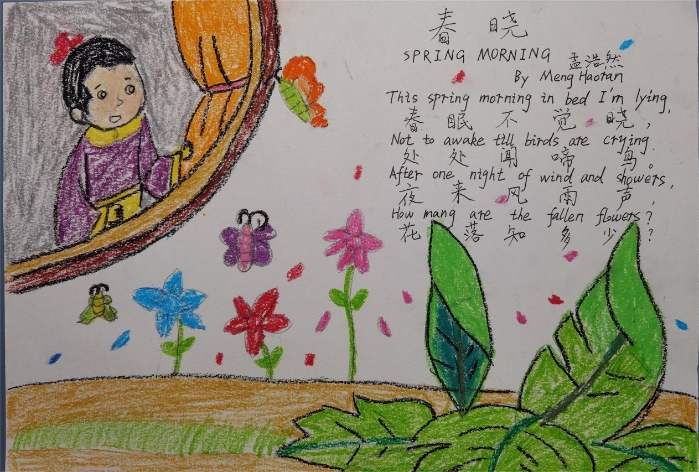 春 晓
SPRING MORNING 孟浩然
By Meng Haoran
This spring morning in bed I'm lying,
春 眠 不 觉 晓,
Not to awake till birds are crying.
处 处 闻 啼 鸟。
After one night of wind and showers,
夜 来 风 雨 声,
How many are the fallen flowers?
花 落 知 多 少?